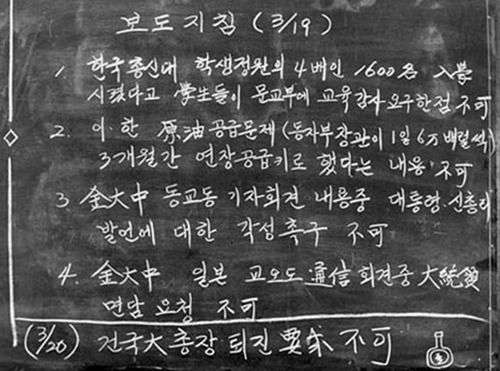 보도지침 (3/19)
1, 한국총신대 학생정원의 4배인 1600名 入學
시켰다고 學生들이 문교부에 교육감사 요구한점 不可
2. 이·한 原油 공급문제 (동자부장관이 1일 6만 백럴씩
3개월간 연장공급키로 했다는 내용 不可
3. 金大中 동교동 기자회견 내용중 대통령·신총리
발언에 대한 각성촉구 不可
4. 金大中 일본 교오도 通信 회견중 大統領
면담 요청 不可
(3/20) 건국大 총장 퇴진 要求 不可